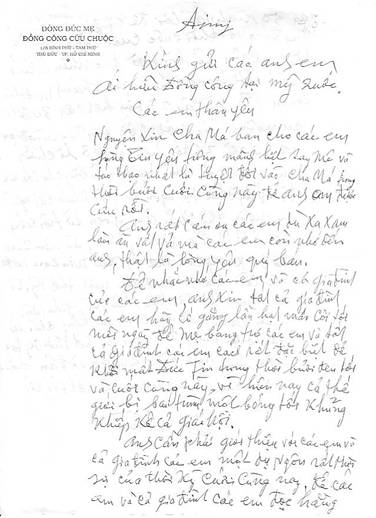 DÒNG ĐỨC MẸ
ĐỒNG CÔNG CỨU CHUỘC
BÌNH PHÚ - TAM PHÚ
THỦ ĐỨC - TP. HỒ CHÍ MINH
Kính gửi các anh em
Ai hữu Đồng công tại Mỹ quốc.
Các em thân yêu
Nguyện xin Cha Mẹ ban cho các em
lòng tin yêu mãnh liệt
nhất là tuyệt đối vào Cha Mẹ trong
thời buổi cuối cùng này để anh em được
cứu rỗi.
Anh rất cám ơn các em dù xa xăm
làm ăn vất vả mà các em còn nhớ đến
anh, thật là lòng yêu quí
Để nhắc nhớ các em và cả gia đình
các em, anh xin tất cả gia đình
các em hãy cố gắng lần hạt
mỗi ngày để Mẹ bang trợ các em và tất
cả gia đình các em cách rất đặc biệt để
khỏi mất Đức Tin trong thời buổi đen tối
và cuối cùng này, vì hiện nay cả thế
giới bị bao trùm một bóng tối khủng
khiếp kể cả giáo hội.
Anh cần phải giới thiệu với các em và
cả gia đình các em một
của thời kỳ cuối cùng này, để các
em và cả gia đình các em đọc hằng